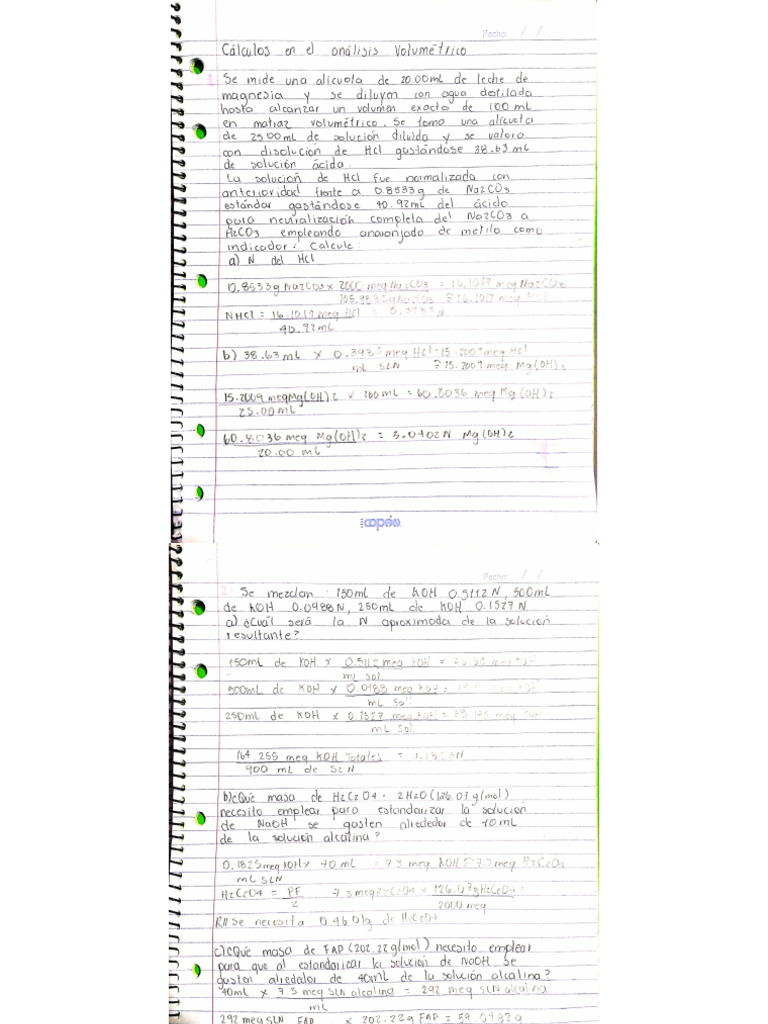 Fecha: / /
Cálculos en el análisis Volumétrico
1. Se mide una alicuota de 20.00ml de leche de
magnesia y se diluyen con agua destilada
hasta alcanzar un volumen exacto de 100 ml
en matraz volumétrico. Se toma una alicuota
de 25.00 ml de solución diluida y se valora
con disolución de HCl gastándose 38.63 ml
de solución ácida.
La solución de HCl fue normalizada con
anterioridad frente a 0.8533g de Na2CO3
estándar gastándose 40.92ml del ácido
para neutralización completa del Na2CO3 a
H2CO3 empleando anaranjado de metilo como
indicador. Calcule:
a) N del HCl
0.8533g Na2CO3 x 2000 meq Na2CO3 = 16.1017 meq Na2CO3
≅ 16.1017 meq HCl
NHCl = 16.1017 meq HCl = 0.3935 N
40.92ml
b) 38.63 ml x 0.3935 meq HCl = 15.2009 meq HCl
ml SLN ≅ 15.2009 meq Mg(OH)2
15.2009 meq Mg(OH)2 x 100 ml = 60.8036 meq Mg(OH)2
25.00 ml
60.8036 meq Mg(OH)2 = 3.0402 N Mg(OH)2
20.00 ml
Fecha: / /
2. Se mezclan: 150ml de KOH 0.5112 N, 500ml
de KOH 0.0988 N, 250ml de KOH 0.1527 N
a) ¿Cuál será la N aproximada de la solución
resultante?
150ml de KOH x 0.5112 meq KOH =
ml sol.
500ml de KOH x 0.0988 meq KOH =
ml Sol.
250ml de KOH x 0.1527 meq KOH =
mL Sol.
164.255 meq KOH Totales = 0.1825N
900 ml de SLN
b) ¿Qué masa de H2C2O4 · 2H2O (126.07 g/mol)
necesito emplear para estandarizar la solución
de NaOH se gasten alrededor de 40ml
de la solución alcalina?
0.1825 meq KOH x 40 ml = 7.3 meq KOH ≅ 7.3 meq H2C2O4
ml SLN
H2C2O4 = PF 7.3 meq H2C2O4 x 126.07g H2C2O4 =
2 2000 meq
R// Se necesita 0.4601g de H2C2O4
c) ¿Qué masa de FAP (202.22 g/mol) necesito emplear
para que al estandarizar la solución de NaOH se
gasten alrededor de 40ml de la solución alcalina?
40ml x 7.3 meq SLN alcalina = 292 meq SLN alcalina
ml
292 meq SLN FAP x 202.22g FAP = 59.0482g